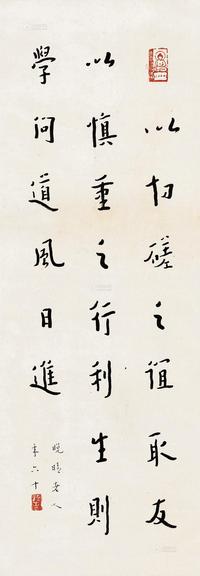 以切磋之誼取友
以慎重之行利生則
學問道風日進
晚晴老人
年六十